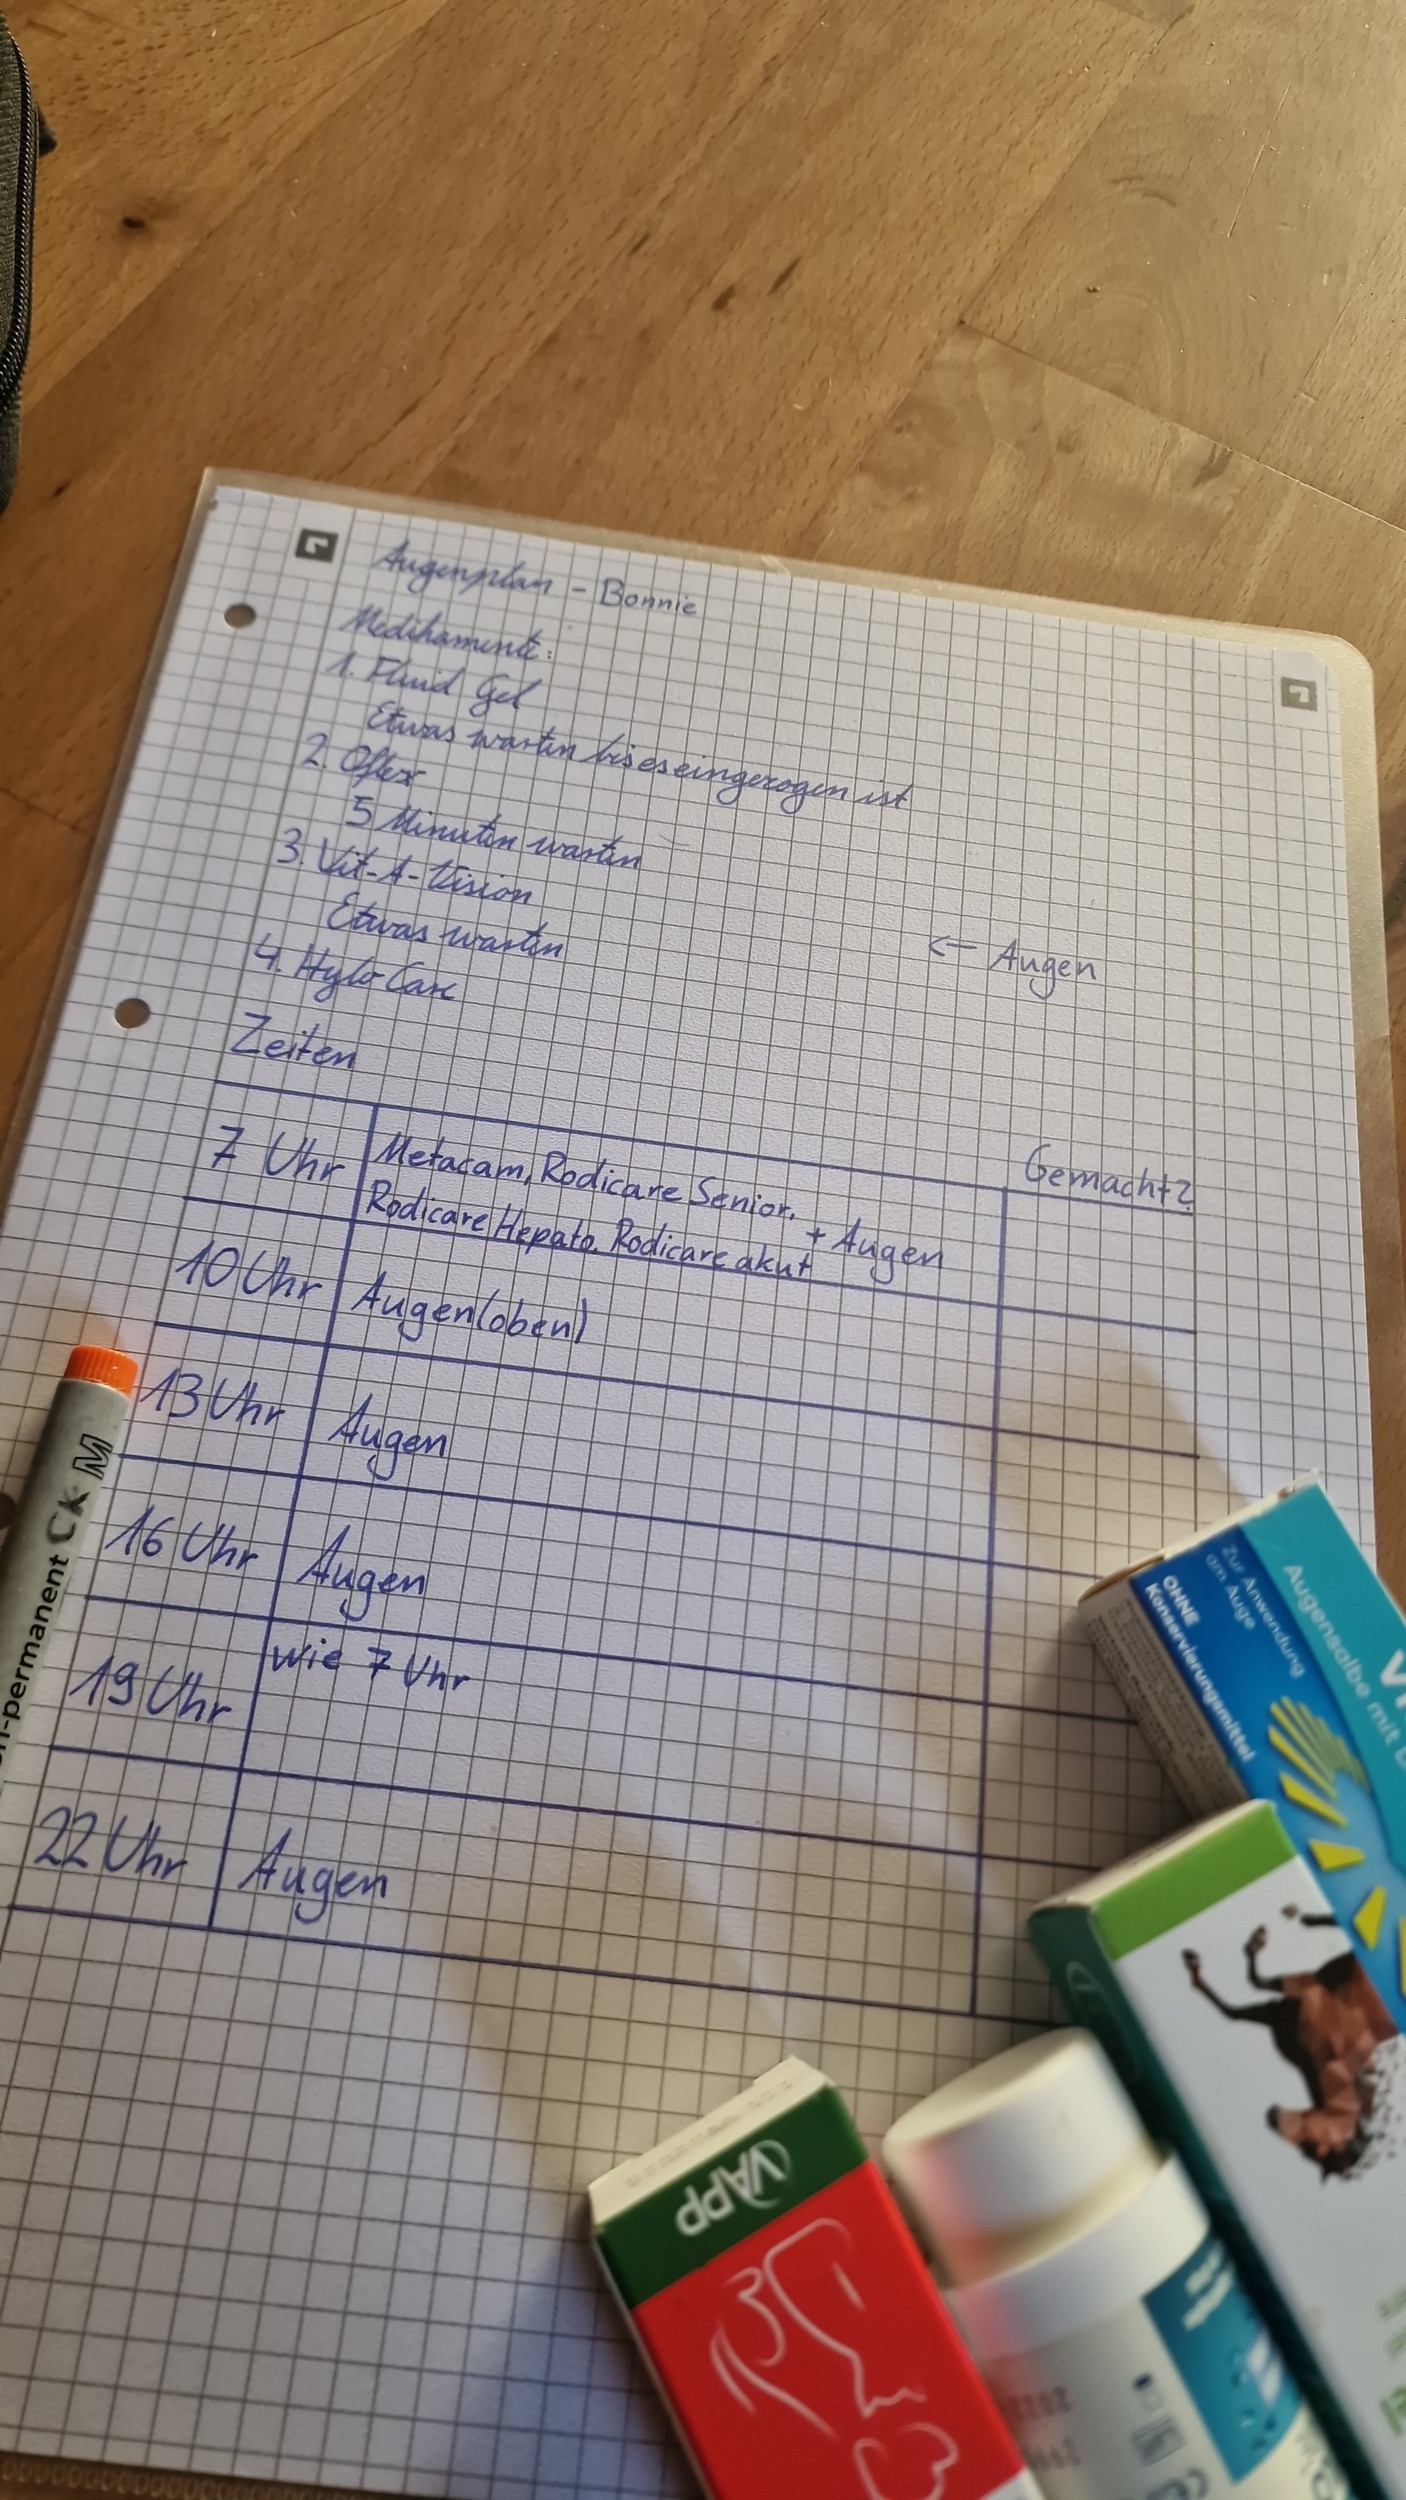 Augenplan - Bonnie
Medikamente:
1. Fluid Gel
Etwas warten bis es eingezogen ist
2. Oflox
5 Minuten warten
3. Vit-A-Vision
Etwas warten
4. Hylo Care
← Augen
Zeiten
Gemacht?
7 Uhr
Metacam, Rodicare Senior,
Rodicare Hepato, Rodicare akut
+ Augen
10 Uhr
Augen (oben)
13 Uhr
Augen
16 Uhr
Augen
19 Uhr
wie 7 Uhr
22 Uhr
Augen
n-permanent CK M
Augensalbe mit
Zur Anwendung
am Auge
OHNE
Konservierungsmittel
VAPP